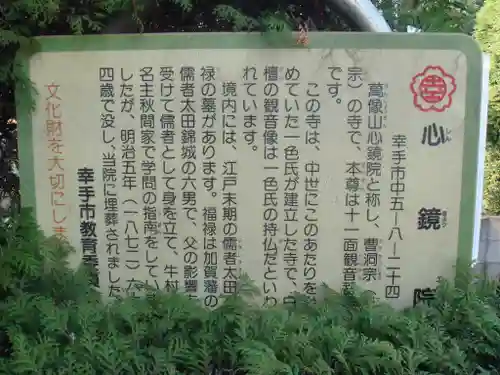 心鏡院
幸手市中五―八―二十四
萬像山心鏡院と称し、曹洞宗
宗）の寺で、本尊は十一面観音
です。
この寺は、中世にこのあたりを
めていた一色氏が建立した寺で、
檀の観音像は一色氏の持仏だとい
れています。
境内には、江戸末期の儒者太田
禄の墓があります。福禄は加賀藩の
儒者太田錦城の六男で、父の影響
受けて儒者として身を立て、牛村
名主秋間家で学問の指南をしてい
したが、明治五年（一八七二）六
四歳で没し、当院に埋葬されました
幸手市教育委
文化財を大切にしま